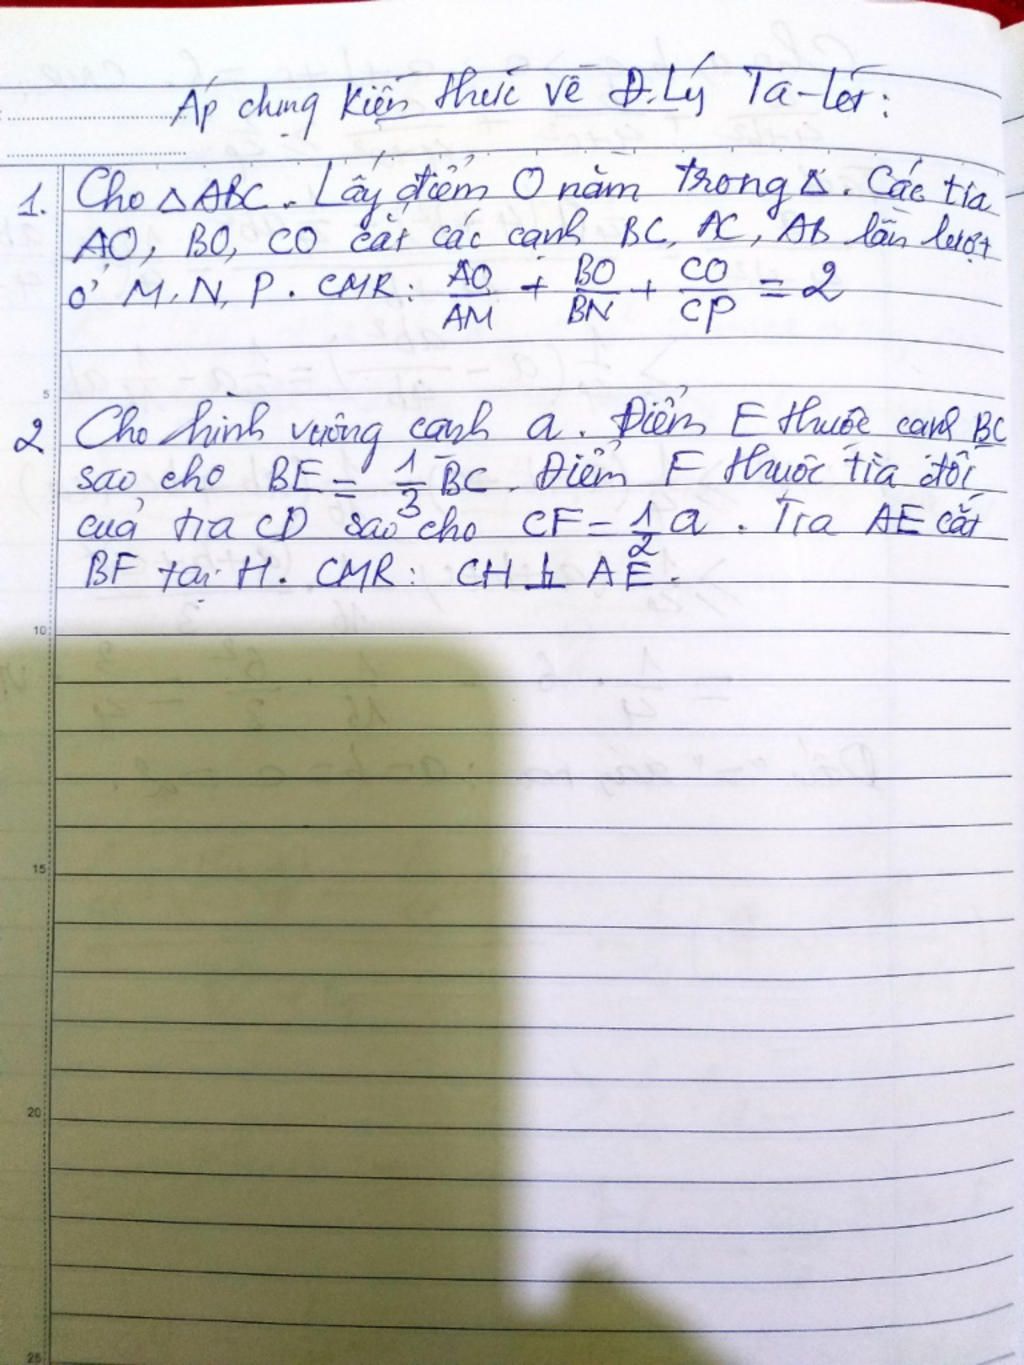 Áp dụng Kiến thức về Đ.Lý Ta-lét:
1. Cho △ABC. Lấy điểm O nằm trong △. Các tia
AO, BO, CO cắt các cạnh BC, AC, AB lần lượt
ở M, N, P. CMR: AO/AM + BO/BN + CO/CP = 2
5
2 Cho hình vuông cạnh a. Điểm E thuộc cạnh BC
sao cho BE = 1/3 BC. Điểm F thuộc tia đối
của tia CD sao cho CF = 1/2 a. Tia AE cắt
BF tại H. CMR: CH ⊥ AE.
10
15
20
25